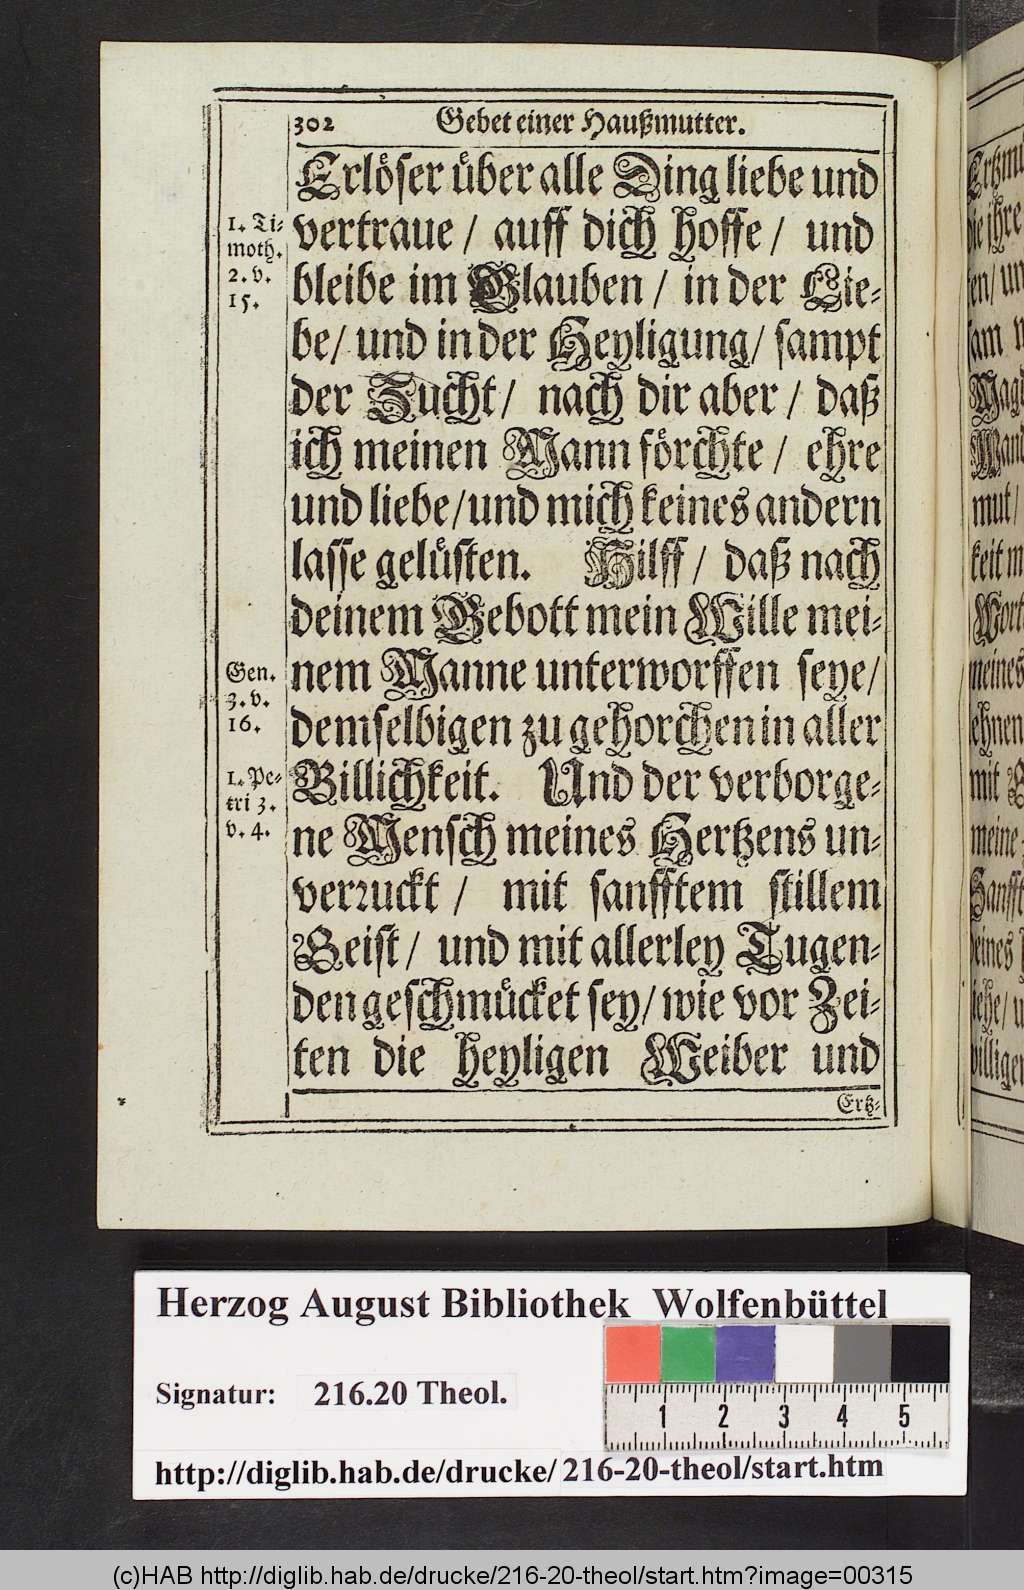 302 Gebet einer Haußmutter.
Erlöser über alle Ding liebe und
vertraue / auff dich hoffe / und
bleibe im Glauben / in der Lie-
be / und in der Heyligung / sampt
der Zucht / nach dir aber / daß
ich meinen Mann förchte / ehre
und liebe / und mich keines andern
lasse gelüsten. Hilff / daß nach
deinem Gebott mein Wille mei-
nem Manne unterworffen seye /
demselbigen zu gehorchen in aller
Billichkeit. Und der verborge-
ne Mensch meines Hertzens un-
verruckt / mit sanfftem stillem
Geist / und mit allerley Tugen-
den geschmücket sey / wie vor Zei-
ten die heyligen Weiber und
Ertz-
1. Ti-
moth.
2. v.
15.
Gen.
3. v.
16.
1. Pe-
tri 3.
v. 4.
Herzog August Bibliothek Wolfenbüttel
Signatur: 216.20 Theol.
1 2 3 4 5
http://diglib.hab.de/drucke/ 216-20-theol/start.htm
(c)HAB http://diglib.hab.de/drucke/216-20-theol/start.htm?image=00315